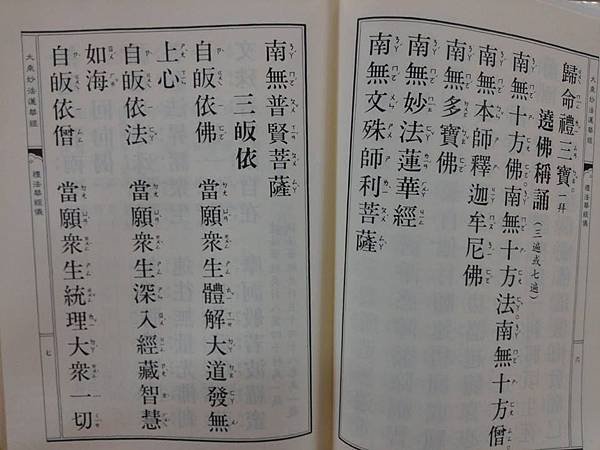 歸命禮三寶。拜
遶佛稱誦(三遍或七遍)
南無十方佛南無十方法南無十方僧
南無本師釋迦牟尼佛
南無多寶佛
南無妙法蓮華經
南無文殊師利菩薩
大乘妙法蓮華經
禮法華經儀
六
南無普賢菩薩
三皈依
自皈依佛 當願眾生體解大道發無
上心
自皈依法 當願眾生深入經藏智慧
如海
自皈依僧 當願眾生統理大眾一切
大乘妙法蓮華經
禮法華經儀
七